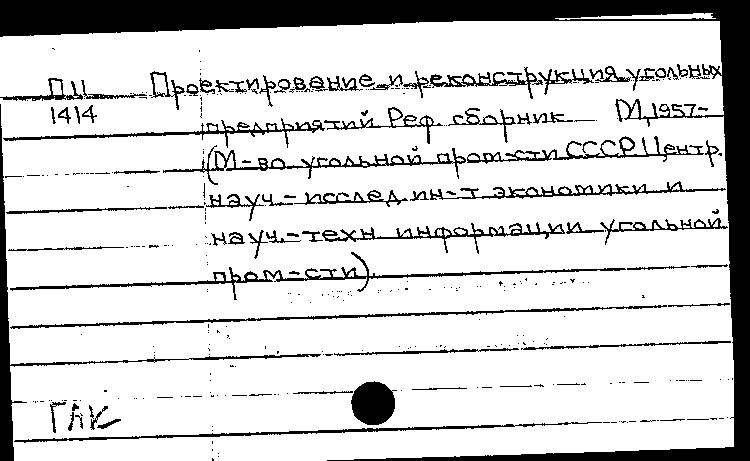 П11 Проектирование и реконструкция угольных
1414
предприятий Реф. сборник М, 1957-
(М-во угольной пром-сти СССР Центр.
науч.-исслед ин-т экономики и
науч.-техн информации угольной
пром-сти).
ГАК